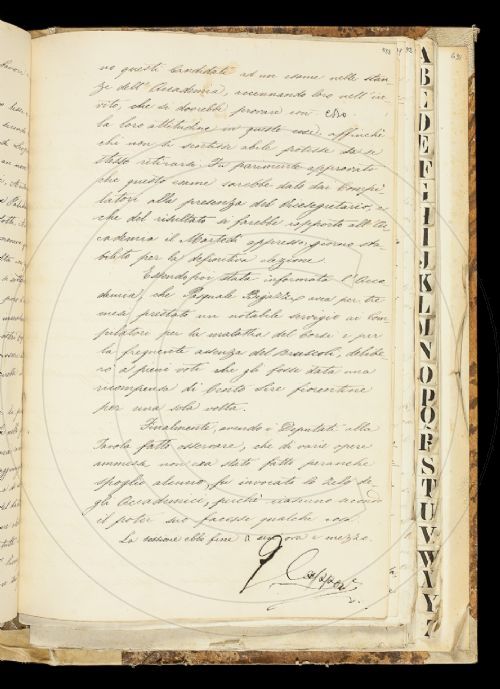 no questi Candidati ad un esame nelle stan-
ze dell'Accademia, accennando loro nell'in-
vito, che si dovrebbe provare con esso
la loro attitudine affinché
chi non si sentisse abile potesse da se
stesso ritirarsi. Fu parimente approvato
che questo esame sarebbe dato dai Compi-
latori alla presenza del Vicesegretario, e
che del risultato si farebbe rapporto all'Ac-
cademia il Martedì appresso, giorno sta-
bilito per la definitiva elezione.
Essendo poi stata informata l'Acca-
demia, che Pasquale avea per tre
mesi prestato un notabile servigio ai Com-
pilatori per la malattia del Corsi e per
la frequente assenza del delibe-
rò a pieni voti che gli fosse data una
ricompensa di Cento Lire fiorentine
per una sola volta.
Finalmente, avendo i Deputati alla
Tavola fatto osservare, che di varie opere
ammesse non era stato fatto peranche
spoglio alcuno, fu invocato lo zelo de-
gli Accademici, perché ciascuno secondo
il poter suo facesse qualche cosa.
La sessione ebbe fine a un'ora e mezzo.
A
B
C
D
E
F
G
H
I
J
K
L
M
N
O
P
Q
R
S
T
U
V
W
X
Y
Z